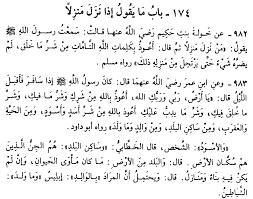 ١٧٤ - بابُ مَا يَقُولُ إِذَا نَزَلَ مَنْزِلًا
٩٨٢ - عن خَولَةَ بنتِ حَكيمٍ رضيَ اللَّهُ عنها قالتْ: سَمِعْتُ رسولَ اللَّهِ ﷺ
يقولُ: «مَنْ نَزَلَ مَنْزِلًا ثُمَّ قال: أَعُوذُ بِكَلِمَاتِ اللَّهِ التَّامَّاتِ مِنْ شَرِّ مَا خَلَقَ، لَمْ
يَضُرَّهُ شَيْءٌ حَتَّى يَرْتَحِلَ مِنْ مَنْزِلِهِ ذلكَ» رواه مسلم.
٩٨٣ - وعن ابنِ عمرَ رضيَ اللَّهُ عنهما قال: كانَ رسولُ اللَّهِ ﷺ إذا سَافَرَ فَأَقْبَلَ
اللَّيْلُ قال: «يَا أَرْضُ، رَبِّي وَرَبُّكِ اللَّه، أَعُوذُ بِاللَّهِ مِنْ شَرِّكِ وَشَرِّ مَا فِيكِ، وشَرِّ
ما خُلِقَ فيكِ، وشَرِّ ما يَدِبُّ عليكِ، أَعُوذُ باللَّهِ مِنْ شَرِّ أَسَدٍ وَأَسْوَدٍ، ومِنَ الحيَّةِ
والعقربِ، ومِنْ سَاكِنِ البَلَدِ، ومِنْ والِدٍ وما وَلَدَ» رواه أبو داود.
«والأسوَدُ» الشخص، قال الخَطَّابي: «وسَاكِنِ البَلَدِ»: هُمُ الجِنُّ الَّذِينَ
هم سُكَّانُ الأرضِ. قال: والبَلَدُ مِنَ الأرْضِ: ما كان مَأوَى الحيوانِ، وإنْ لَمْ
يَكُنْ فيه بِنَاءٌ وَمَنَازِلُ. قال: ويَحتَمِلُ أنَّ المرادَ «بالوالِدِ»: إبليسُ «وما وَلَدَ»:
الشَّيَاطينُ.